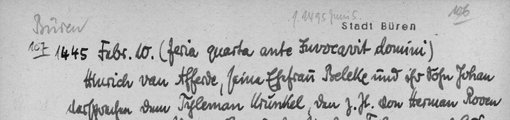 Büren
Stadt Büren
106
107 1445 Febr. 10. (feria quarta ante Invocavit domini)
Hinrich van Afferde, seine Ehefrau Beleke und ihr Sohn Johan
versprechen dem Tyleman Krunkel, den z. Zt. von Herman Roven